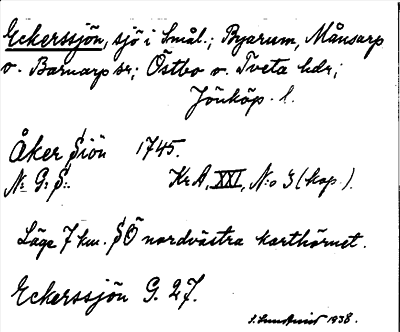 Eckerssjön, sjö i Smål.; Byarum, Månsarp
o. Barnarp sn; Östbo o. Tveta hdr;
Jönköp. l.
Åker Siön 1745.
N: G: S:. KrA, XXI, N:o 3 (kop.).
Läge 7 km. SÖ nordvästra karthörnet.
Eckerssjön G. 27.
1938.